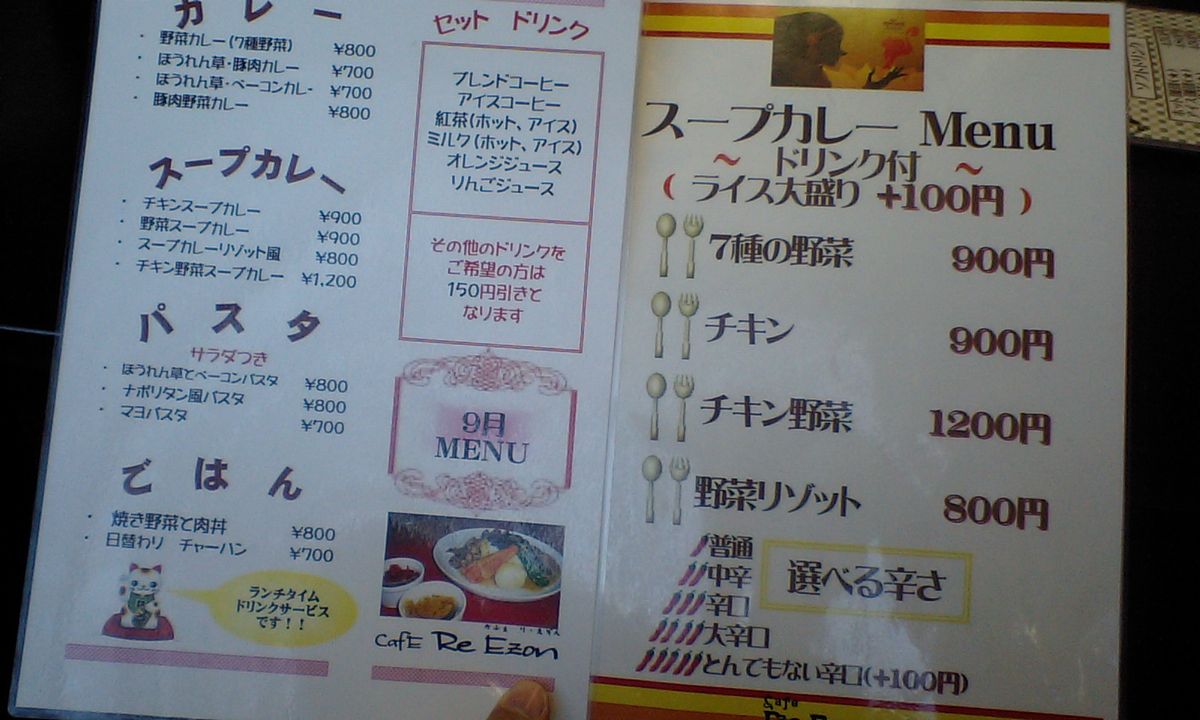 カレー
・ 野菜カレー(7種野菜) ¥800
・ ほうれん草・豚肉カレー ¥700
・ ほうれん草・ベーコンカレー ¥700
・ 豚肉野菜カレー ¥800
スープカレー
・ チキンスープカレー ¥900
・ 野菜スープカレー ¥900
・ スープカレーリゾット風 ¥800
・ チキン野菜スープカレー ¥1,200
パスタ
サラダつき
・ ほうれん草とベーコンパスタ ¥800
・ ナポリタン風パスタ ¥800
・ マヨパスタ ¥700
ごはん
・ 焼き野菜と肉丼 ¥800
・ 日替わり チャーハン ¥700
ランチタイム
ドリンクサービス
です！！
セット ドリンク
ブレンドコーヒー
アイスコーヒー
紅茶(ホット、アイス)
ミルク(ホット、アイス)
オレンジジュース
りんごジュース
その他のドリンクを
ご希望の方は
150円引きと
なります
9月
MENU
かふぇ り・えぞん
CafE Re Ezon
スープカレー Menu
～ ドリンク付 ～
( ライス大盛り +100円 )
7種の野菜 900円
チキン 900円
チキン野菜 1200円
野菜リゾット 800円
選べる辛さ
普通
中辛
辛口
大辛口
とんでもない辛口(+100円)
Cafe
ソフトドリンク